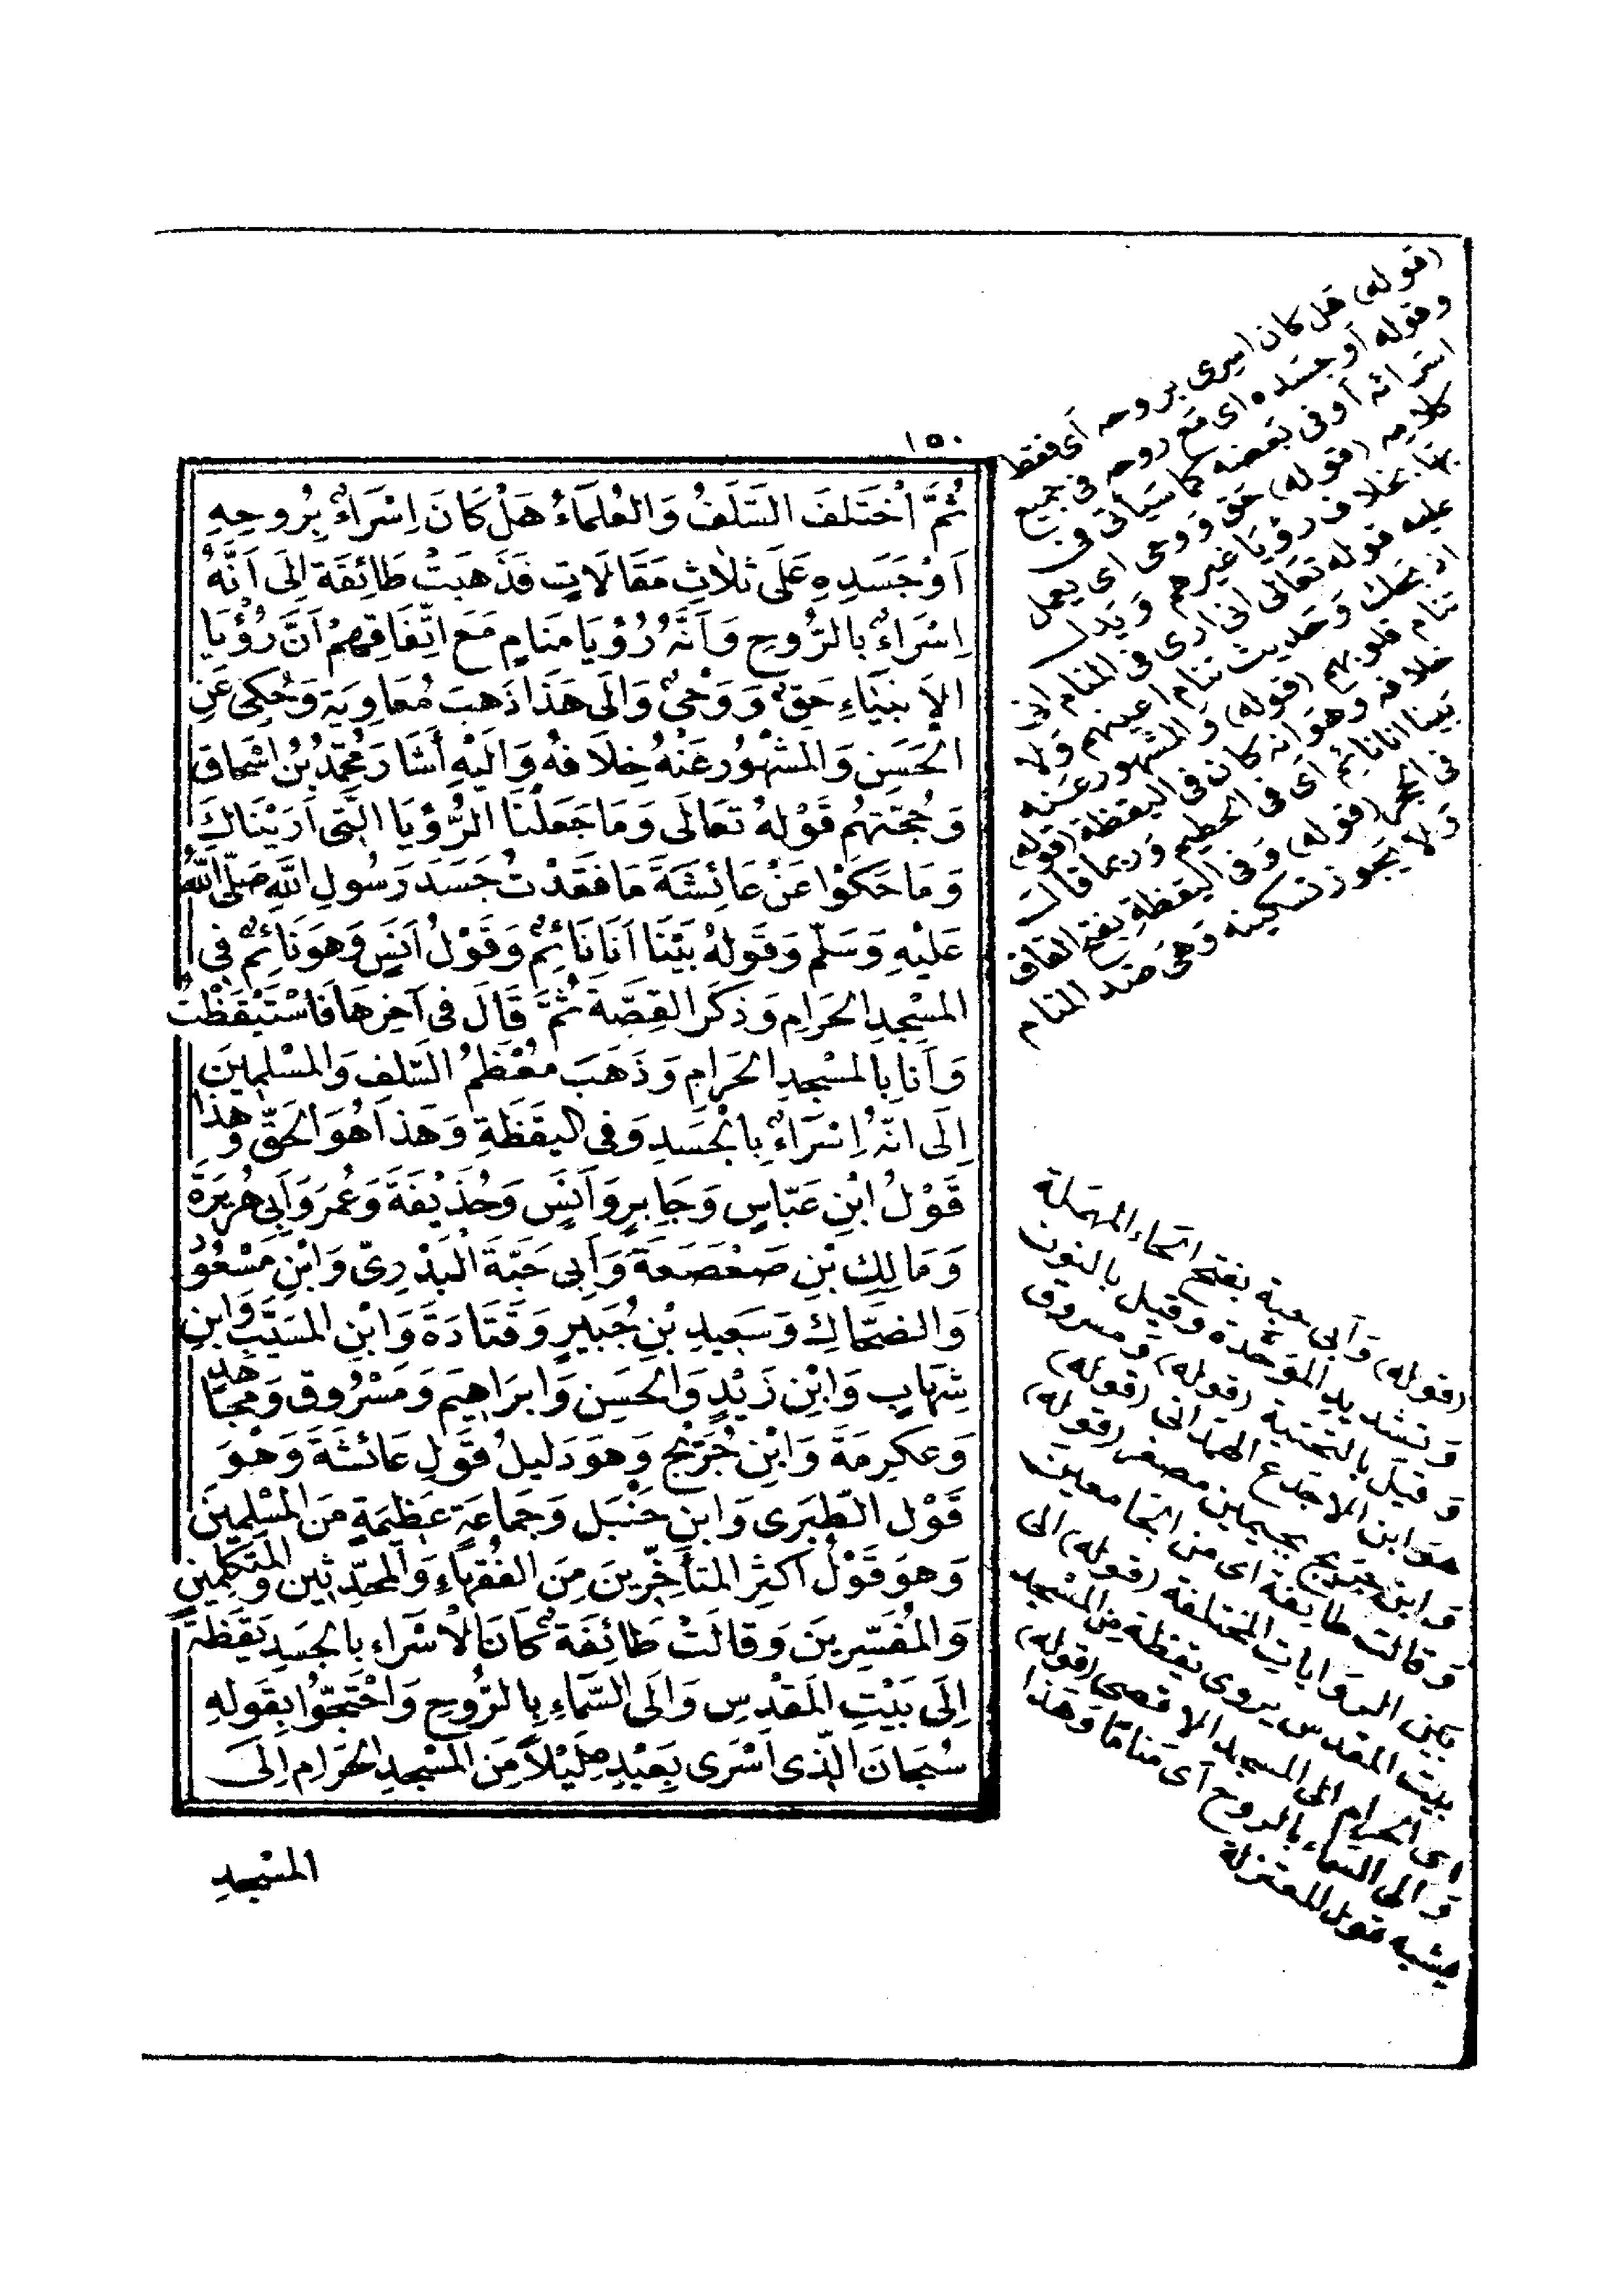 ١٥٠
ثُمَّ اَخْتَلَفَ السَّلَفُ وَالعُلَمَاءُ هَلْ كَانَ اِسْرَاءٌ بِرُوحِهِ
اَوْ جَسَدِهِ عَلَى ثَلاثِ مَقَالَاتٍ فَذَهَبَتْ طَائِفَة اِلَى اَنَّهُ
اِسْرَاءٌ بِالرُّوحِ وَاَنَّهُ رُؤْيَا مَنَامٍ مَعَ اتِّفَاقِهِمْ اَنَّ رُؤْيَا
الاَنبِيَاءِ حَقٌّ وَوَحْىٌ وَالَى هَذَا ذَهَبَ مُعَاوِيَة وَحُكِىَ عَنِ
الْحَسَنِ وَالمَشْهُورُ عَنْهُ خِلَافُهُ وَالَيْهِ أَشَارَ مُحَمَّدُ بْنُ اسْحَاقَ
وَحُجَّتهُم قَوْلهُ تَعَالَى وَمَا جَعَلْنَا الرُّؤيَا الَّتِى اَرَيْنَاكَ
وَمَا حَكَوْا عَنْ عَائِشَةَ مَا فَقَدْتُ جَسَدَ رَسُولِ اللَّهِ صَلَّى اللَّهُ
عَلَيْهِ وَسَلَّم وَقَولهُ بَيْنَا اَنَا نَائِمٌ وَقَوْلُ اَنَسٍ وَهوَ نَائِمٌ فِى
المَسْجِدِ الحَرَامِ وَذكَرَ القِصَّةَ ثُمَّ قَالَ فِى آخِرِهَا فَاسْتَيْقَظْتُ
وَاَنا بِالمَسْجِدِ الحَرَامِ وَذَهَبَ مُعْظَمُ السَّلفِ وَالمُسْلِمِينَ
اِلَى انَّهُ اِسْرَاءٌ بِالْجَسَدِ وَفى اليقَظَةِ وَهَذا هُوَ الحَقّ وَهذا
قَوْلُ ابْنِ عَبّاسٍ وَجَابِرٍ وَاَنَسٍ وَحُذَيْفَةَ وَعُمَرَ وَاَبِى هُرَيرَةَ
وَمَالِكِ بْنِ صَعْصَعَةَ وَاَبِى حَبّةَ الْبَدْرِىّ وَابْنِ مَسْعُودٍ
وَالضحّاكِ وَسَعِيدِ بْنِ جُبَيرٍ وَقَتَادَةَ وَابْنِ المسَيّبِ وَابنِ
شِهَابٍ وَابْنِ زَيْدٍ وَالحَسَنِ وَابرَاهِيمَ وَمَسْرُوقٍ وَمجَاهدٍ
وَعكرِمَةَ وَابْنِ جُرَيْجٍ وَهوَ دَليلُ قَولِ عَائشَةَ وَهْوَ
قَوْل الطّبَرِى وَابنِ حَنْبَل وَجَمَاعَةٍ عَظِيمَةٍ مِنَ المُسْلِمِينَ
وَهوَ قَوْلُ اكثرِ المتَأخِّرِينَ مِنَ الفُقَهَاءِ وَالمحَدّثِين وَالمتَكلّمِينَ
وَالمُفَسّرِينَ وَقالَتْ طَائِفَةٌ كَانَ الْاسْرَاء بالجَسَدِ يَقَظَةً
اِلَى بَيْتِ المَقْدِسِ وَالَى السَّمَاءِ بِالرُّوحِ وَاحْتَجّوا بِقَولهِ
سُبْحَانَ الَّذِى اَسْرَى بِعَبْدِهِ لَيْلاً مِنَ المَسْجِدِ الحَرَامِ اِلَى
المَسْجِدِ
(قوله) هل كان اسرى بروحه أى فقط
وقوله أو جسده اى مع روحه فى جميع
اسرائه أو فى بعضه كما سيأتى فى
كلامه (قوله) حق ووحى اى يعمل
بها بخلاف رؤيا غيرهم ويدل
عليه قوله تعالى انى ارى فى المنام انى
اذبحك وحديث تنام اعينهم ولا
تنام قلوبهم (قوله) والمشهور عنه
خلافه وهو انه كان فى اليقظة (قوله)
بينا انا نائم اى فى الحطيم وربما قال
فى الحجر (قوله) وفى اليقظة بفتح القاف
ولا يجوز تسكينه وهى ضد المنام
(قوله) وأبى حبة بفتح الحاء المهملة
وتشديد الموحدة وقيل بالنون
وقيل بالتحتية (قوله) ومسروق
هو ابن الاجدع الهمدانى (قوله)
وابن جريج بجيمين مصغر (قوله)
وقالت طايفة اى من الجامعين
بين الروايات المختلفة (قوله) الى
بيت المقدس يروى يقظة من المسجد
اى الحرام الى المسجد الاقصى (قوله)
والى السماء بالروح أى مناما وهذا
يشبه قول للمعتزلة